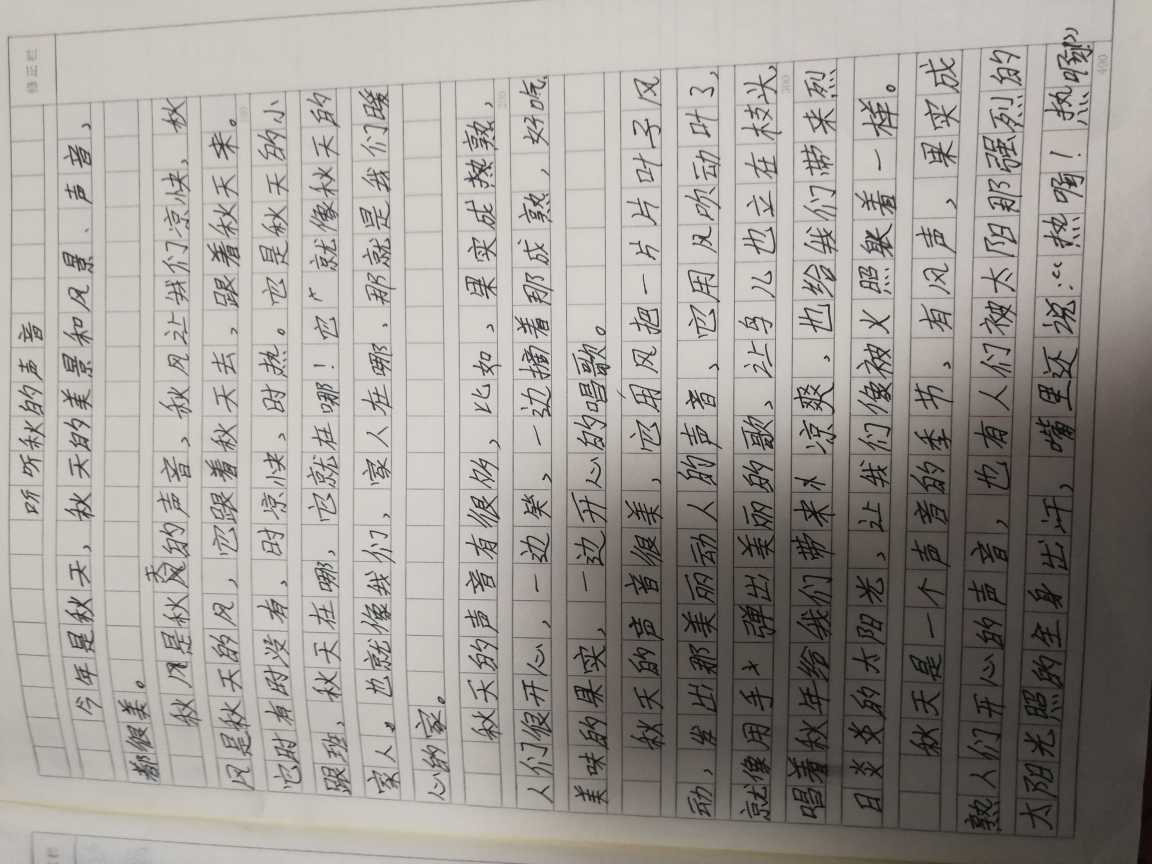 听听秋的声音
今年是秋天，秋天的美景和风景、声音，
都很美。
秋风是秋天的声音，秋风让我们凉快，秋
风是秋天的风，它跟着秋天去，跟着秋天来。
它时有时没有，时凉快，时热。它是秋天的小
跟班，秋天在哪，它就在哪！它“就像秋天的
家人。也就像我们，家人在哪，那就是我们暖
心的家。
秋天的声音有很多，比如，果实成熟熟，
人们很开心，一边笑，一边摘着那成熟，好吃，
美味的果实，一边开心的唱歌。
秋天的声音很美，它用风把一片片叶子风
动，发出那美丽动人的声音，它用风吹动叶了，
就像用手弹出美丽的歌，让鸟儿也立在枝头，
唱着秋年给我们带来凉爽，也给我们带来烈
日炎炎的太阳光，让我们像被火照着一样。
秋天是一个声音的季节，有风声，果实成
熟人们开心的声音，也有人们被太阳那强烈的
太阳光照的全身出汗，嘴里还说：“热啊！热啊”
修正栏
300
400